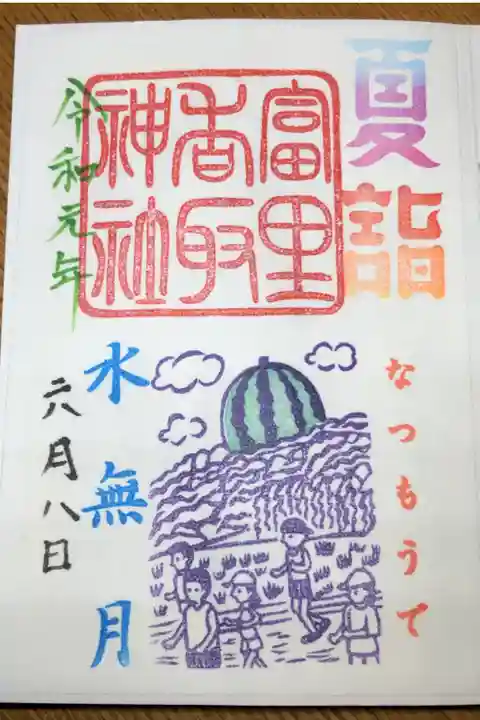 夏詣
なつもうで
富里
香取
神社
水無月
令和元年
六月八日